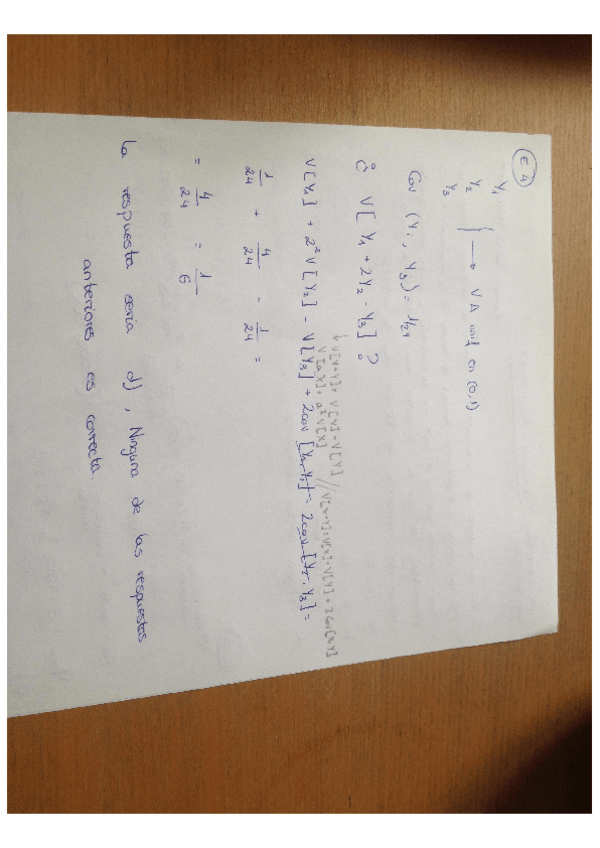 E4
Y1
Y2 } → VA unif en (0,1)
Y3
Cov (Yi, Yj) = 1/24
¿ V[Y1 + 2Y2 - Y3] ?
V[X+Y] = V[X] + V[Y] // V[X+Y] = V[X] + V[Y] + 2 Cov[X,Y]
V[aX] = a² V[X]
V[Y1] + 2² V[Y2] - V[Y3] + 2cov [Y1, Y3] - 2cov [Y2, Y3] =
1/24 + 4/24 - 1/24 =
= 4/24 = 1/6
la respuesta sería d), Ninguna de las respuestas
anteriores es correcta.